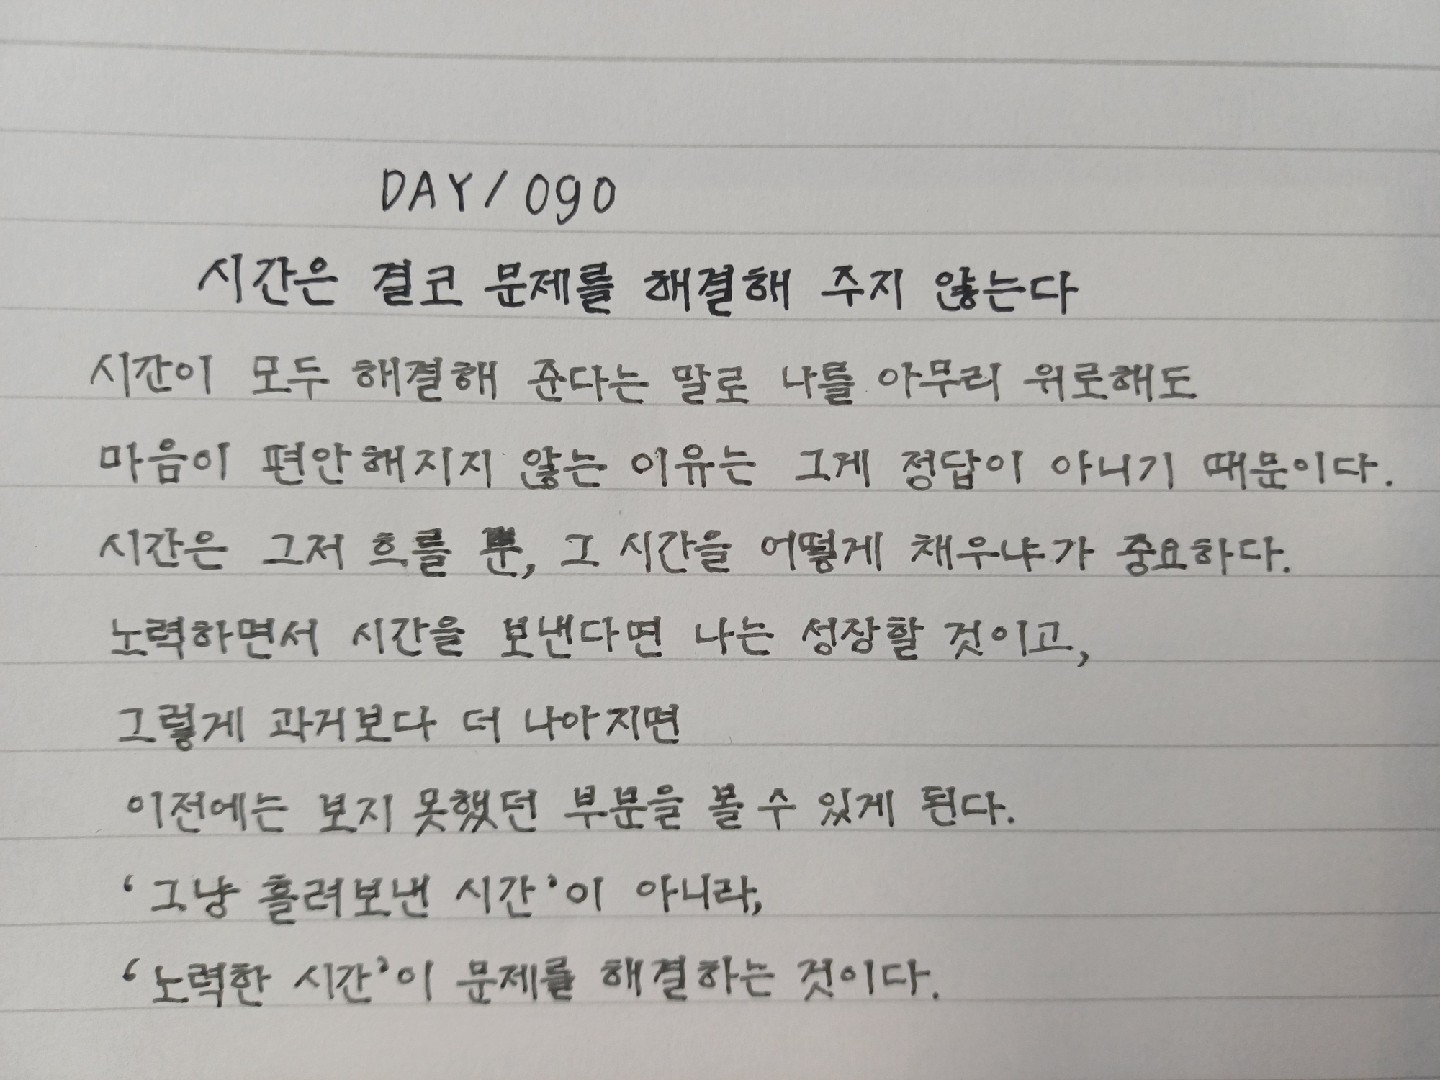 DAY/090
시간은 결코 문제를 해결해 주지 않는다
시간이 모두 해결해 준다는 말로 나를 아무리 위로해도
마음이 편안해지지 않는 이유는 그게 정답이 아니기 때문이다.
시간은 그저 흐를 뿐, 그 시간을 어떻게 채우냐가 중요하다.
노력하면서 시간을 보낸다면 나는 성장할 것이고,
그렇게 과거보다 더 나아지면
이전에는 보지 못했던 부분을 볼 수 있게 된다.
‘그냥 흘려보낸 시간’이 아니라,
‘노력한 시간’이 문제를 해결하는 것이다.